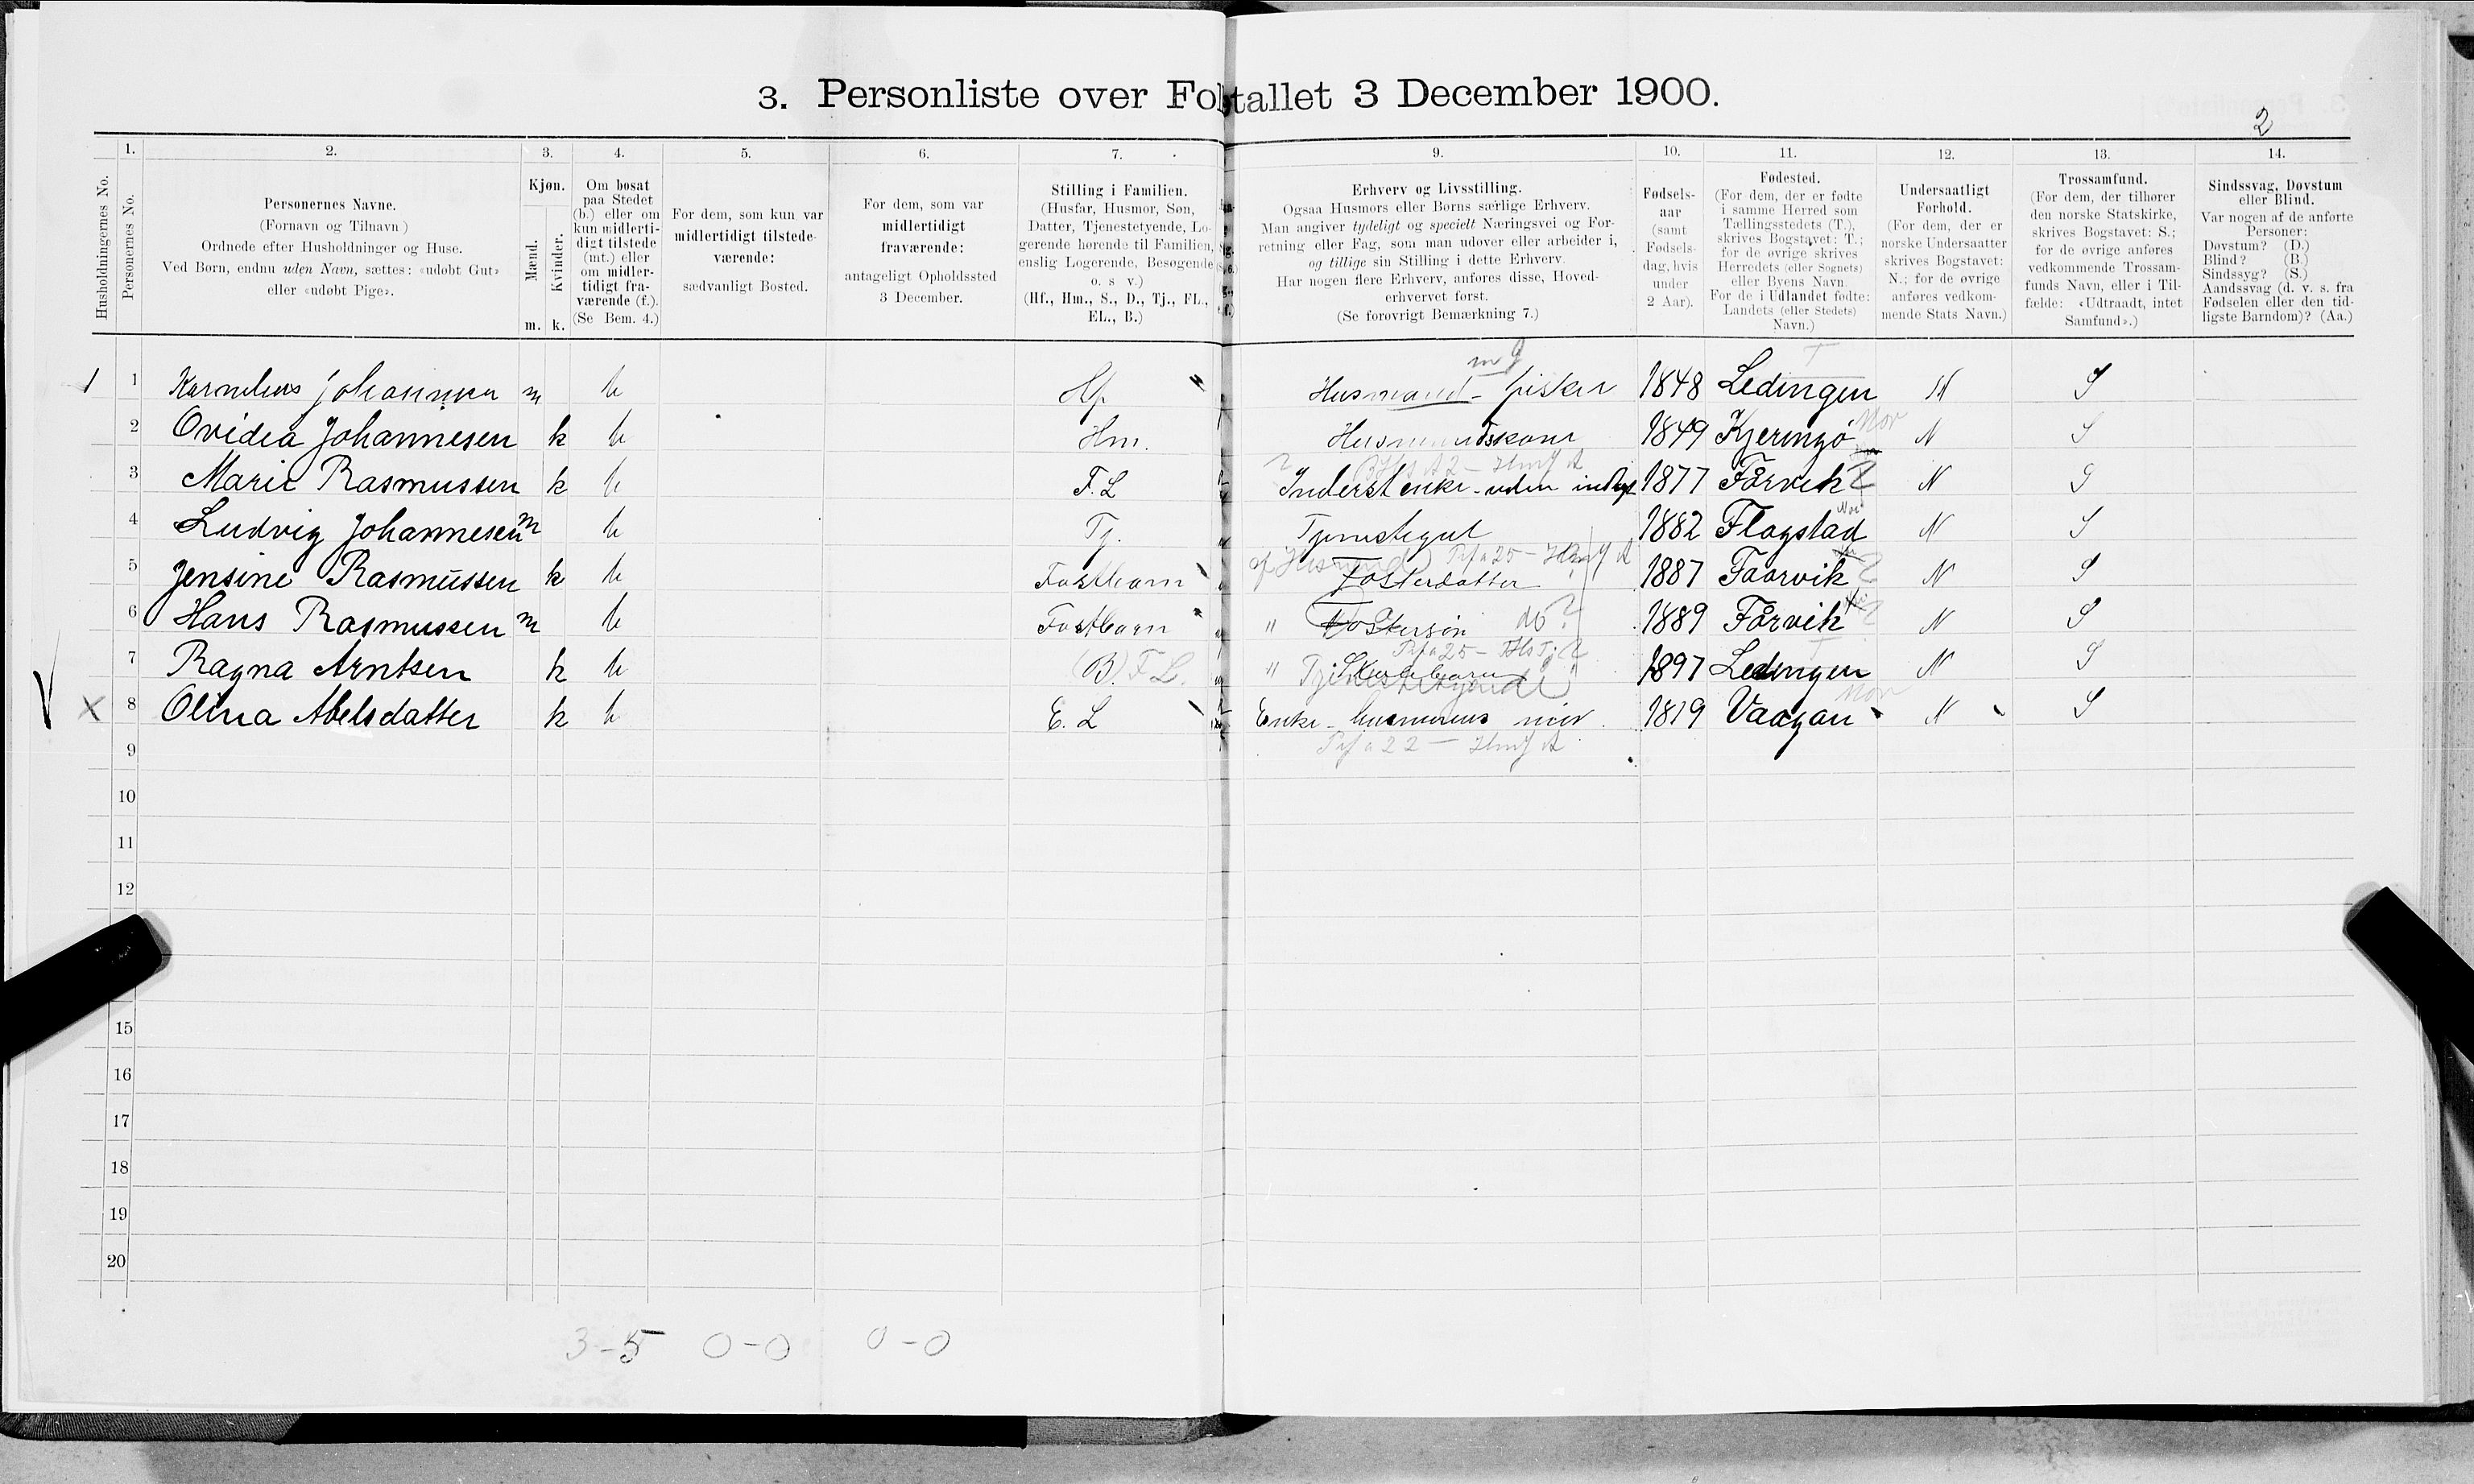 3. Personliste over Folketallet 3 December 1900.
2
1. 2. 3. 4. 5. 6. 7. 9. 10. 11. 12. 13. 14.
Husholdningernes No.
Personernes No.
Personernes Navne.
(Fornavn og Tilnavn)
Ordnede efter Husholdninger og Huse.
Ved Børn, endnu uden Navn, sættes: «udøbt Gut»
eller «udøbt Pige».
Kjøn.
Mænd.
Kvinder.
m. k.
Om bosat
paa Stedet
(b.) eller om
kun midlerti-
digt tilstede
(mt.) eller
om midler-
tidigt fra-
værende (f.).
(Se Bem. 4.)
For dem, som kun var
midlertidigt tilstede-
værende:
sædvanligt Bosted.
For dem, som var
midlertidigt
fraværende:
antageligt Opholdssted
3 December.
Stilling i Familien.
(Husfar, Husmor, Søn,
Datter, Tjenestetyende, Lo-
gerende hørende til Familien,
enslig Logerende, Besøgende
o. s v.)
(Hf., Hm., S., D., Tj., FL.,
EL., B.)
Erhverv og Livsstilling.
Ogsaa Husmors eller Børns særlige Erhverv.
Man angiver tydeligt og specielt Næringsvei og For-
retning eller Fag, som man udøver eller arbeider i,
og tillige sin Stilling i dette Erhverv.
Har nogen flere Erhverv, anføres disse, Hoved-
erhvervet først.
(Se forøvrigt Bemærkning 7.)
Fødsels-
aar
(samt
Fødsels-
dag, hvis
under
2 Aar).
Fødested.
(For dem, der er fødte
i samme Herred som
Tællingsstedets (T.),
skrives Bogstavet: T.;
for de øvrige skrives
Herredets (eller Sognets)
eller Byens Navn.
For de i Udlandet fødte:
Landets (eller Stedets)
Navn.)
Undersaatligt
Forhold.
(For dem, der er
norske Undersaatter
skrives Bogstavet:
N.; for de øvrige
anføres vedkom-
mende Stats Navn.)
Trossamfund.
(For dem, der tilhører
den norske Statskirke,
skrives Bogstavet: S.;
for de øvrige anføres
vedkommende Trossam-
funds Navn, eller i Til-
fælde: «Udtraadt, intet
Samfund».)
Sindssvag, Døvstum
eller Blind.
Var nogen af de anførte
Personer:
Døvstum? (D.)
Blind? (B.)
Sindssyg? (S.)
Aandssvag (d. v. s. fra
Fødselen eller den tid-
ligste Barndom)? (Aa.)
1 1 Kornelius Johannesen m b Hf Husmand - fisker 1848 Lødingen N S
2 Ovidea Johannesen k b Hm. Husmandskone 1849 Kjeringø N S
3 Marie Rasmussen k b F.L Inderst enke - uden 1877 Førvik N S
4 Ludvig Johannesen m b Tj. Tjenestegut 1882 Flagstad N S
5 Jensine Rasmussen k b Fostbarn Fosterdatter 1887 Faarvik N S
6 Hans Rasmussen m b Fostbarn " Fostersøn 1889 Førvik N S
7 Ragna Arntsen k b (B). F L. " 1897 Lødingen N S
X 8 Olina Abelsdatter k b E. L Enke - husmorens mor 1819 Vaagan N S
9
10
11
12
15
16
17
18
19
20
3-5 0-0 0-0